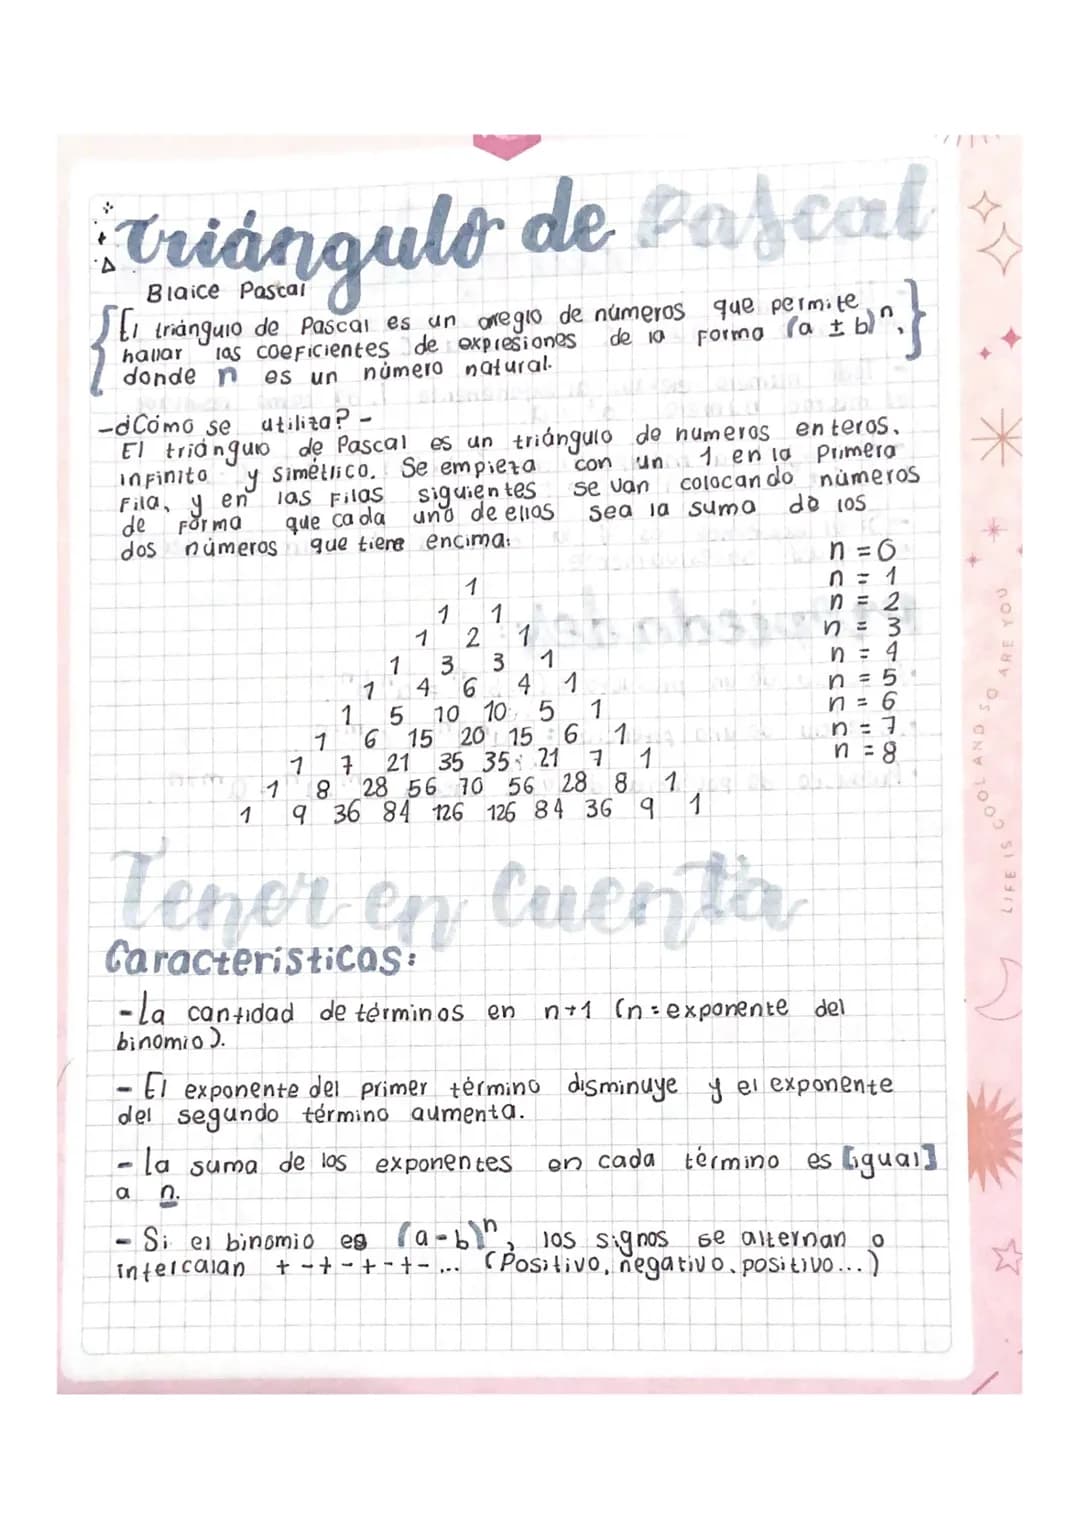 triángulo de Pascal
Blaice Pascal
El triángulo de Pascal es un aregio de números que permite
hallar las coeficientes de expresiones de la forma (a ± b)ⁿ,
donde n es un número natural.
-¿Cómo se utiliza? -
El triángulo de Pascal es un triángulo de numeros enteros,
infinito y simétrico. Se empieza con un 1 en la Primera
Fila, y en las Filas siguientes se van colocando números
de Forma que cada uno de ellos sea la suma de los
dos números que tiene encima:
1 n = 0
1 1 n = 1
1 2 1 n = 2
1 3 3 1 n = 3
1 4 6 4 1 n = 4
1 5 10 10 5 1 n = 5
1 6 15 20 15 6 1 n = 6
1 7 21 35 35 21 7 1 n = 7
1 8 28 56 70 56 28 8 1 n = 8
1 9 36 84 126 126 84 36 9 1
Tener en Cuenta
Caracteristicas:
-La cantidad de términos en n+1 (n=exponente del
binomio).
- El exponente del primer término disminuye y el exponente
del segundo término aumenta.
- la suma de los exponentes en cada término es [igual]
a n.
- Si el binomio es (a-b)ⁿ, los signos se alternan o
intercalan + - + - + - + - ... (Positivo, negativo, positivo...)
LIFE IS COOL AND SO ARE YOU